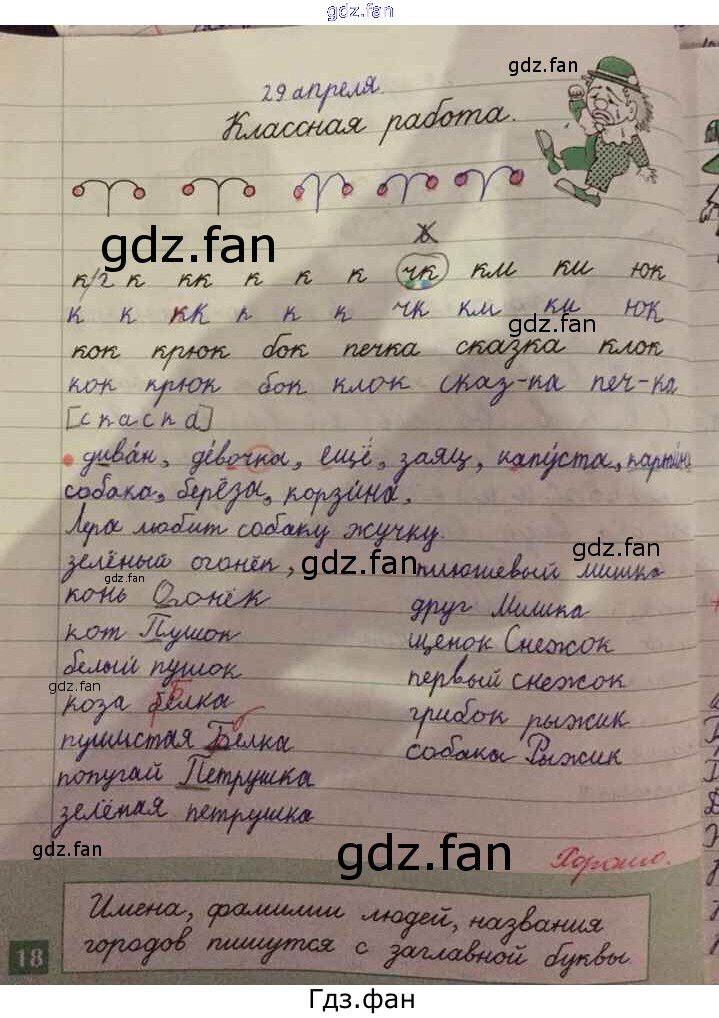 gdz.fan
29 апреля.
Классная работа.
к/г к кк к к к чк км ки юк
к к кк к к к чк км ки юк
кок крюк бок печка сказка клок
кок крюк бок клок сказ-ка печ-ка
[спаска]
диван, девочка, ещё, заяц, капуста, картина
собака, берёза, корзина.
Лера любит собаку жучку.
зелёный огонёк, плюшевый мишка
конь Огонёк друг Мишка
кот Пушок щенок Снежок
белый пушок первый снежок
коза Белка грибок рыжик
пушистая Белка собака Рыжик
попугай Петрушка
зелёная петрушка
Хорошо.
Имена, фамилии людей, названия
городов пишутся с заглавной буквы
18
gdz.fan
gdz.fan
gdz.fan
gdz.fan
gdz.fan
gdz.fan
gdz.fan
gdz.fan
gdz.fan
gdz.fan
Гдз.фан